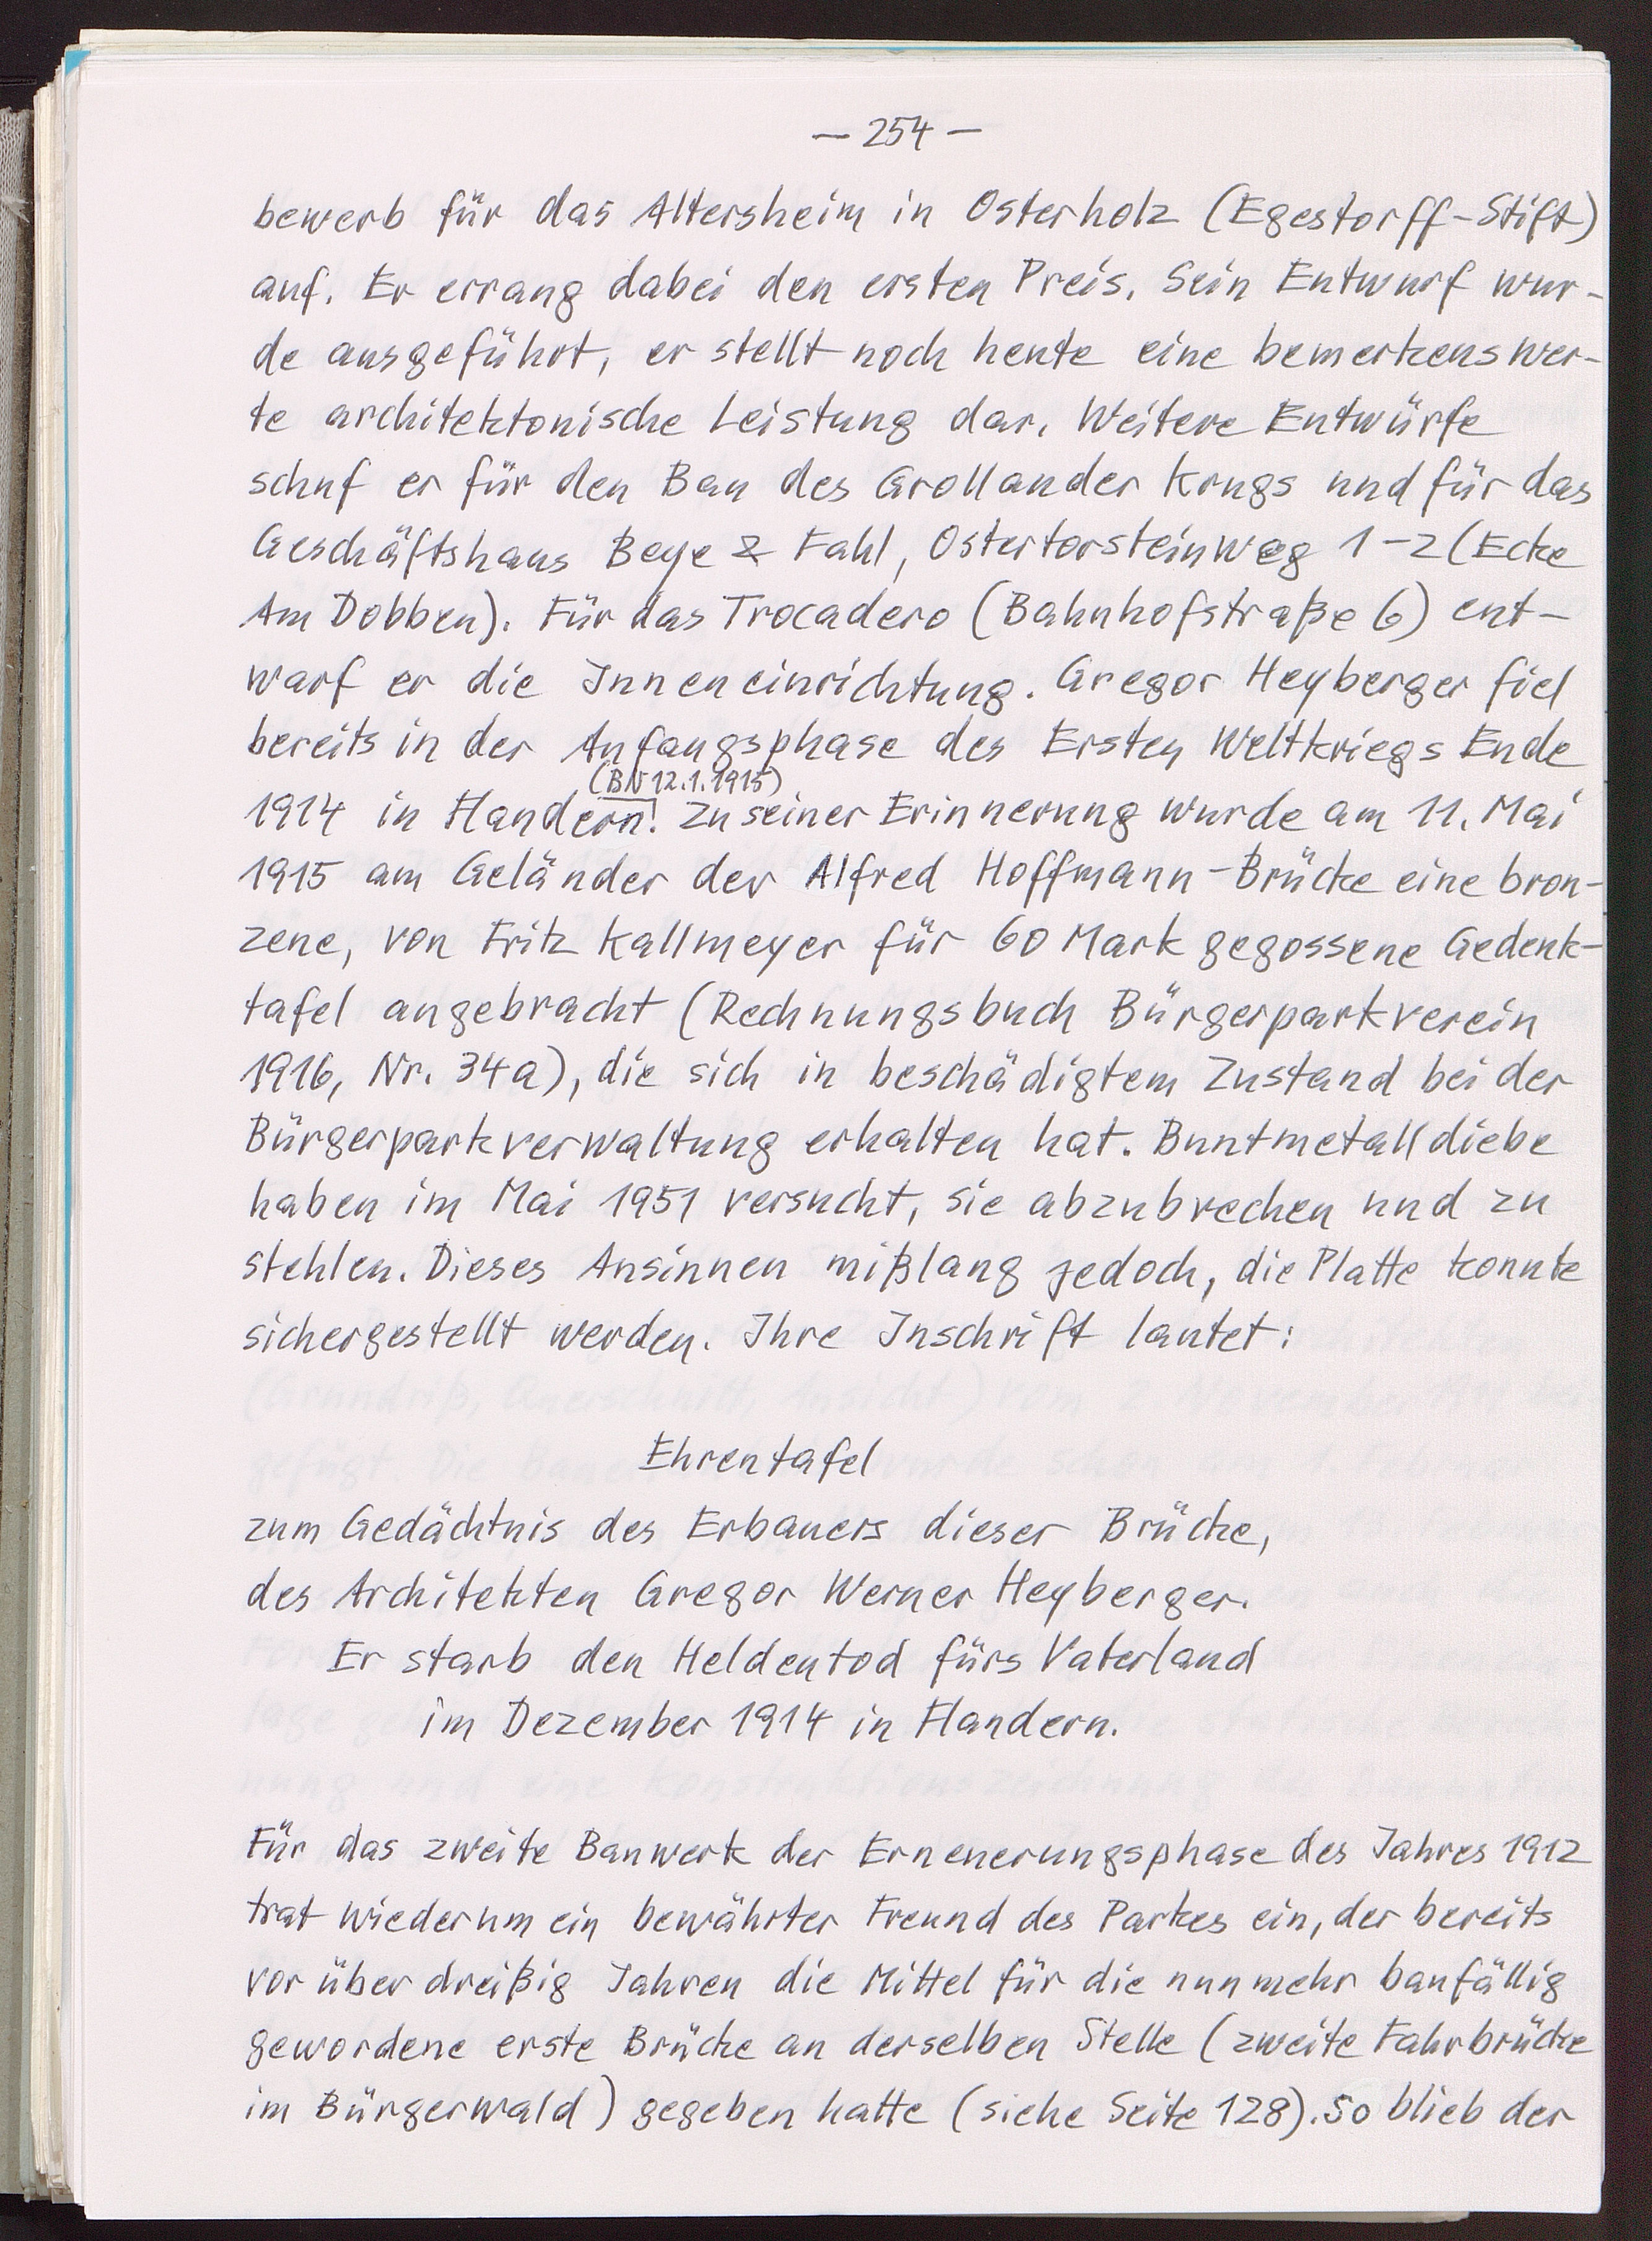 — 254 —
bewerb für das Altersheim in Osterholz (Egestorff-Stift)
auf. Er errang dabei den ersten Preis. Sein Entwurf wur-
de ausgeführt, er stellt noch heute eine bemerkenswer-
te architektonische Leistung dar. Weitere Entwürfe
schuf er für den Bau des Grollander Krugs und für das
Geschäftshaus Beye & Fahl, Ostertorsteinweg 1-2 (Ecke
Am Dobben). Für das Trocadero (Bahnhofstraße 6) ent-
warf er die Inneneinrichtung. Gregor Heyberger fiel
bereits in der Anfangsphase des Ersten Weltkriegs Ende
(BN 12.1.1915)
1914 in Flandern. Zu seiner Erinnerung wurde am 11. Mai
1915 am Geländer der Alfred Hoffmann-Brücke eine bron-
zene, von Fritz Kallmeyer für 60 Mark gegossene Gedenk-
tafel angebracht (Rechnungsbuch Bürgerparkverein
1916, Nr. 34a), die sich in beschädigtem Zustand bei der
Bürgerparkverwaltung erhalten hat. Buntmetalldiebe
haben im Mai 1951 versucht, sie abzubrechen und zu
stehlen. Dieses Ansinnen mißlang jedoch, die Platte konnte
sichergestellt werden. Ihre Inschrift lautet:
Ehrentafel
zum Gedächtnis des Erbauers dieser Brücke,
des Architekten Gregor Werner Heyberger.
Er starb den Heldentod fürs Vaterland
im Dezember 1914 in Flandern.
Für das zweite Bauwerk der Erneuerungsphase des Jahres 1912
trat wiederum ein bewährter Freund des Parkes ein, der bereits
vor über dreißig Jahren die Mittel für die nunmehr baufällig
gewordene erste Brücke an derselben Stelle (zweite Fahrbrücke
im Bürgerwald) gegeben hatte (siehe Seite 128). So blieb der